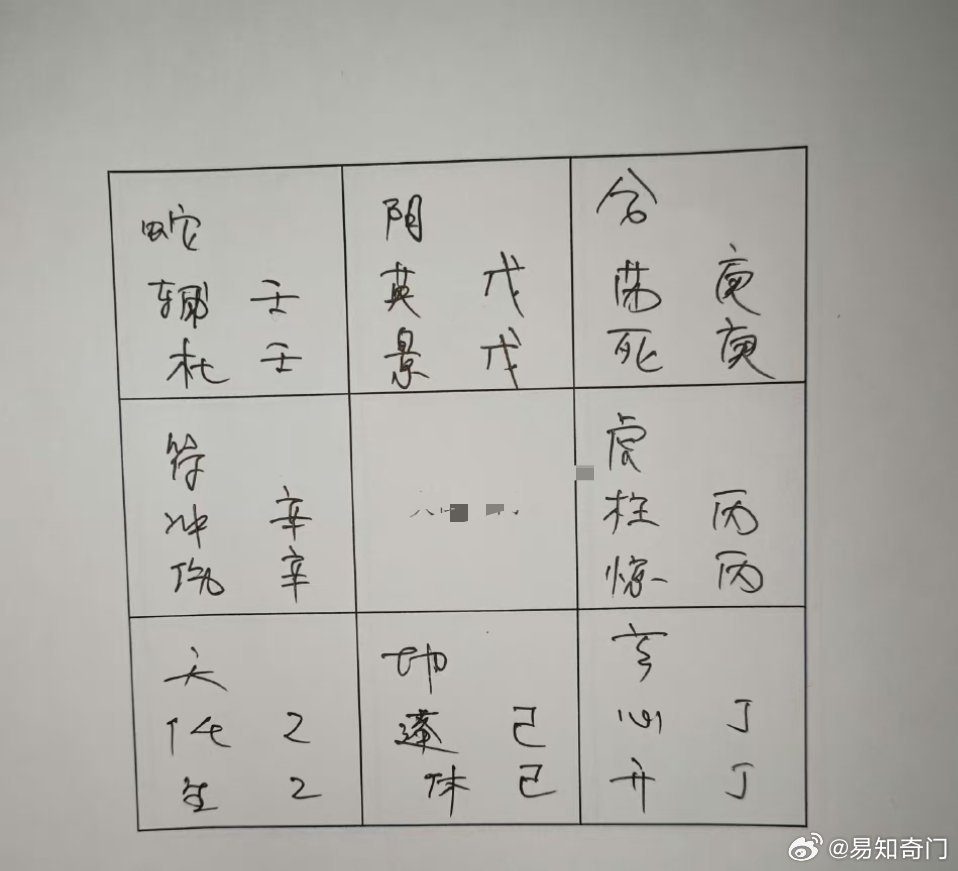 蛇
辅 壬
杜 壬
阴
英 戊
景 戊
合
芮 庚
死 庚
符
冲 辛
伤 辛
虎
柱 丙
惊 丙
天
任 乙
生 乙
地
蓬 己
休 己
玄
心 丁
开 丁
@易知奇门